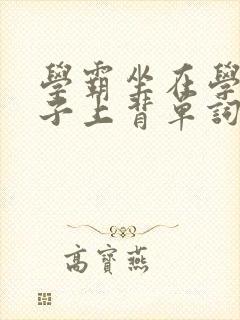 學霸坐在學
子上背單詞
高寶燕